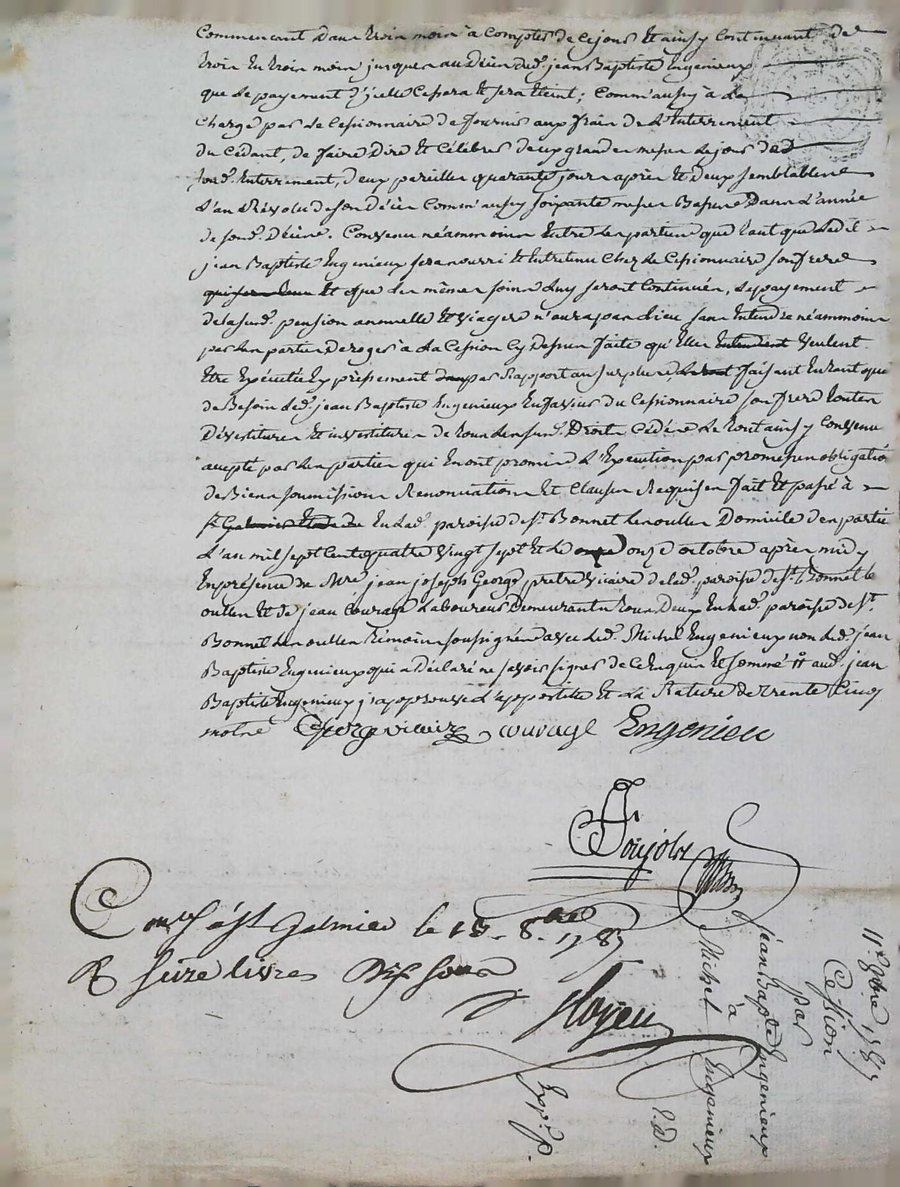 Commencant dans trois mois à Compter de Cejour Et ainsy Continuant de
trois En trois mois jusques au Décès dud. jean Baptiste Engenieux
que Le payement d'jcelle Cessera Et sera Eteint; Comm'aussy à La
Charge par Le Cessionnaire de fournir aux frais de L'Enterrement
du Cédant, de faire Dire Et Célébrer deux grandes messes Le jour dud
sond. Enterrement, deux pareilles quarante jours après Et deux semblables
L'an Révolu de son Décès Comm'aussy soixante messes Basses Dans L'année
de sond. Décès. Convenu néammoins Entre Les parties que tant que Ledit
jean Baptiste Engenieux sera nourri Et Entretenu Chez Le Cessionnaire son frere
Et que Les mêmes soins Luy seront Continués, Le payement
de Lasusd. pension annuelle Et viagere n'aura pas Lieu sans Entendre néammoins
par Les parties Deroger à La Cession Cy Dessus faite qu'Elles Entendent Veulent
Etre Exécutée Expréssement par Rapport au surplus, faisant Entant que
de Besoin Led. jean Baptiste Engenieux En faveur du Cessionnaire son frere toutes
Dévestitures Et investitures de tous Les susd. Droits Cédés Le tout ainsy Convenu
accepté par Les parties qui En ont promis L'Exécution par promesses obligatio
de Biens soumissions Renonciations Et Clauses Requises fait Et passé à
St Galmier Etude de En Lad. paroisse de St. Bonnet Les oulles Domicile des parties
L'an mil sept Cent quatre vingt sept Et Le onze onze octobre après midy
En présence de Mre jean joseph George prêtre vicaire de Lad. paroisse de St. Bonnet Le
oulles Et de jean Courage Laboureur Demeurants tous Deux En Lad. paroisse de St.
Bonnet Les oulles témoins soussignés avec Led. Michel Engenieux non Led. jean
Baptiste Engenieux qui a Déclaré ne savoir signer de Ce Enquis Et sommé # aud. jean
Baptiste Engenieux j'ay approuvé L'apostille Et La Rature de trente Cinq
mots
George vicaire Courage Engenieu
Conlé à St Galmier le 15. 8bre 1787
R Seize livres Dix sous
jean Bapte Engenieux
à
Michel Engenieux
11 8bre 1787
Cession
par
Exp. p.